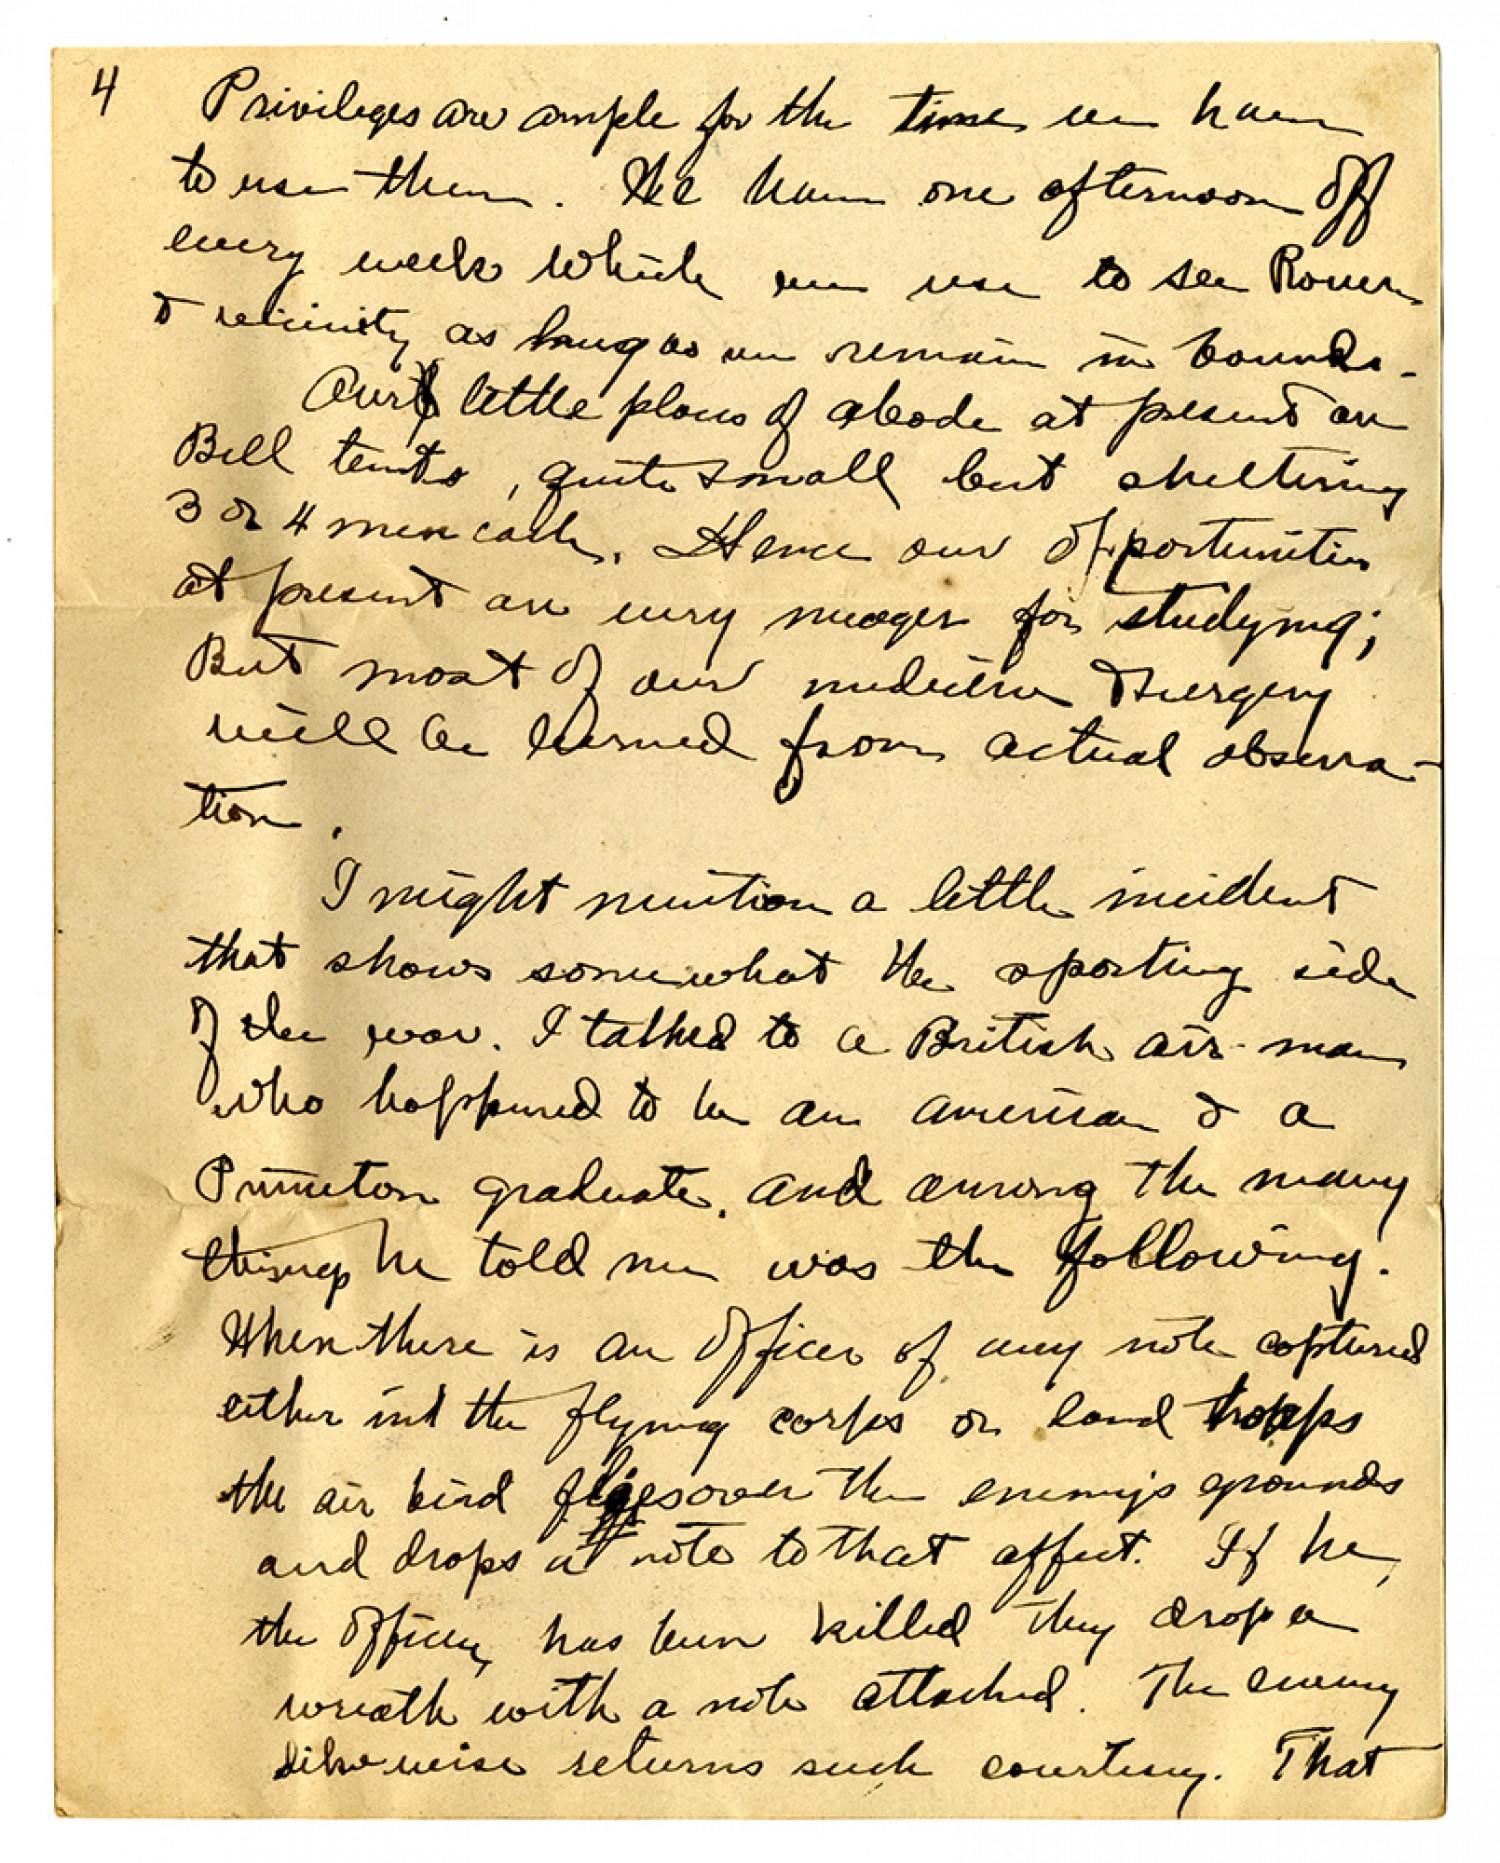 4
Privileges are ample for the time we have
to use them. We have one afternoon off
every week which we use to see Rouen
& vicinity as long as we remain in bounds.
Our little places of abode at present are
Bell tents, quite small but sheltering
3 or 4 men each. Hence our opportunities
at present are very meager for studying;
But most of our medicine & surgery
will be learned from actual observa-
tion.
I might mention a little incident
that shows somewhat the sporting side
of the war. I talked to a British air-man
who happened to be an American & a
Princeton graduate, and among the many
things he told me was the following.
When there is an officer of any note captured
either in the flying corps or land troops
the air bird flies over the enemy's grounds
and drops a note to that affect. If he,
the officer, has been killed they drop a
wreath with a note attached. The enemy
likewise returns such courtesy. That